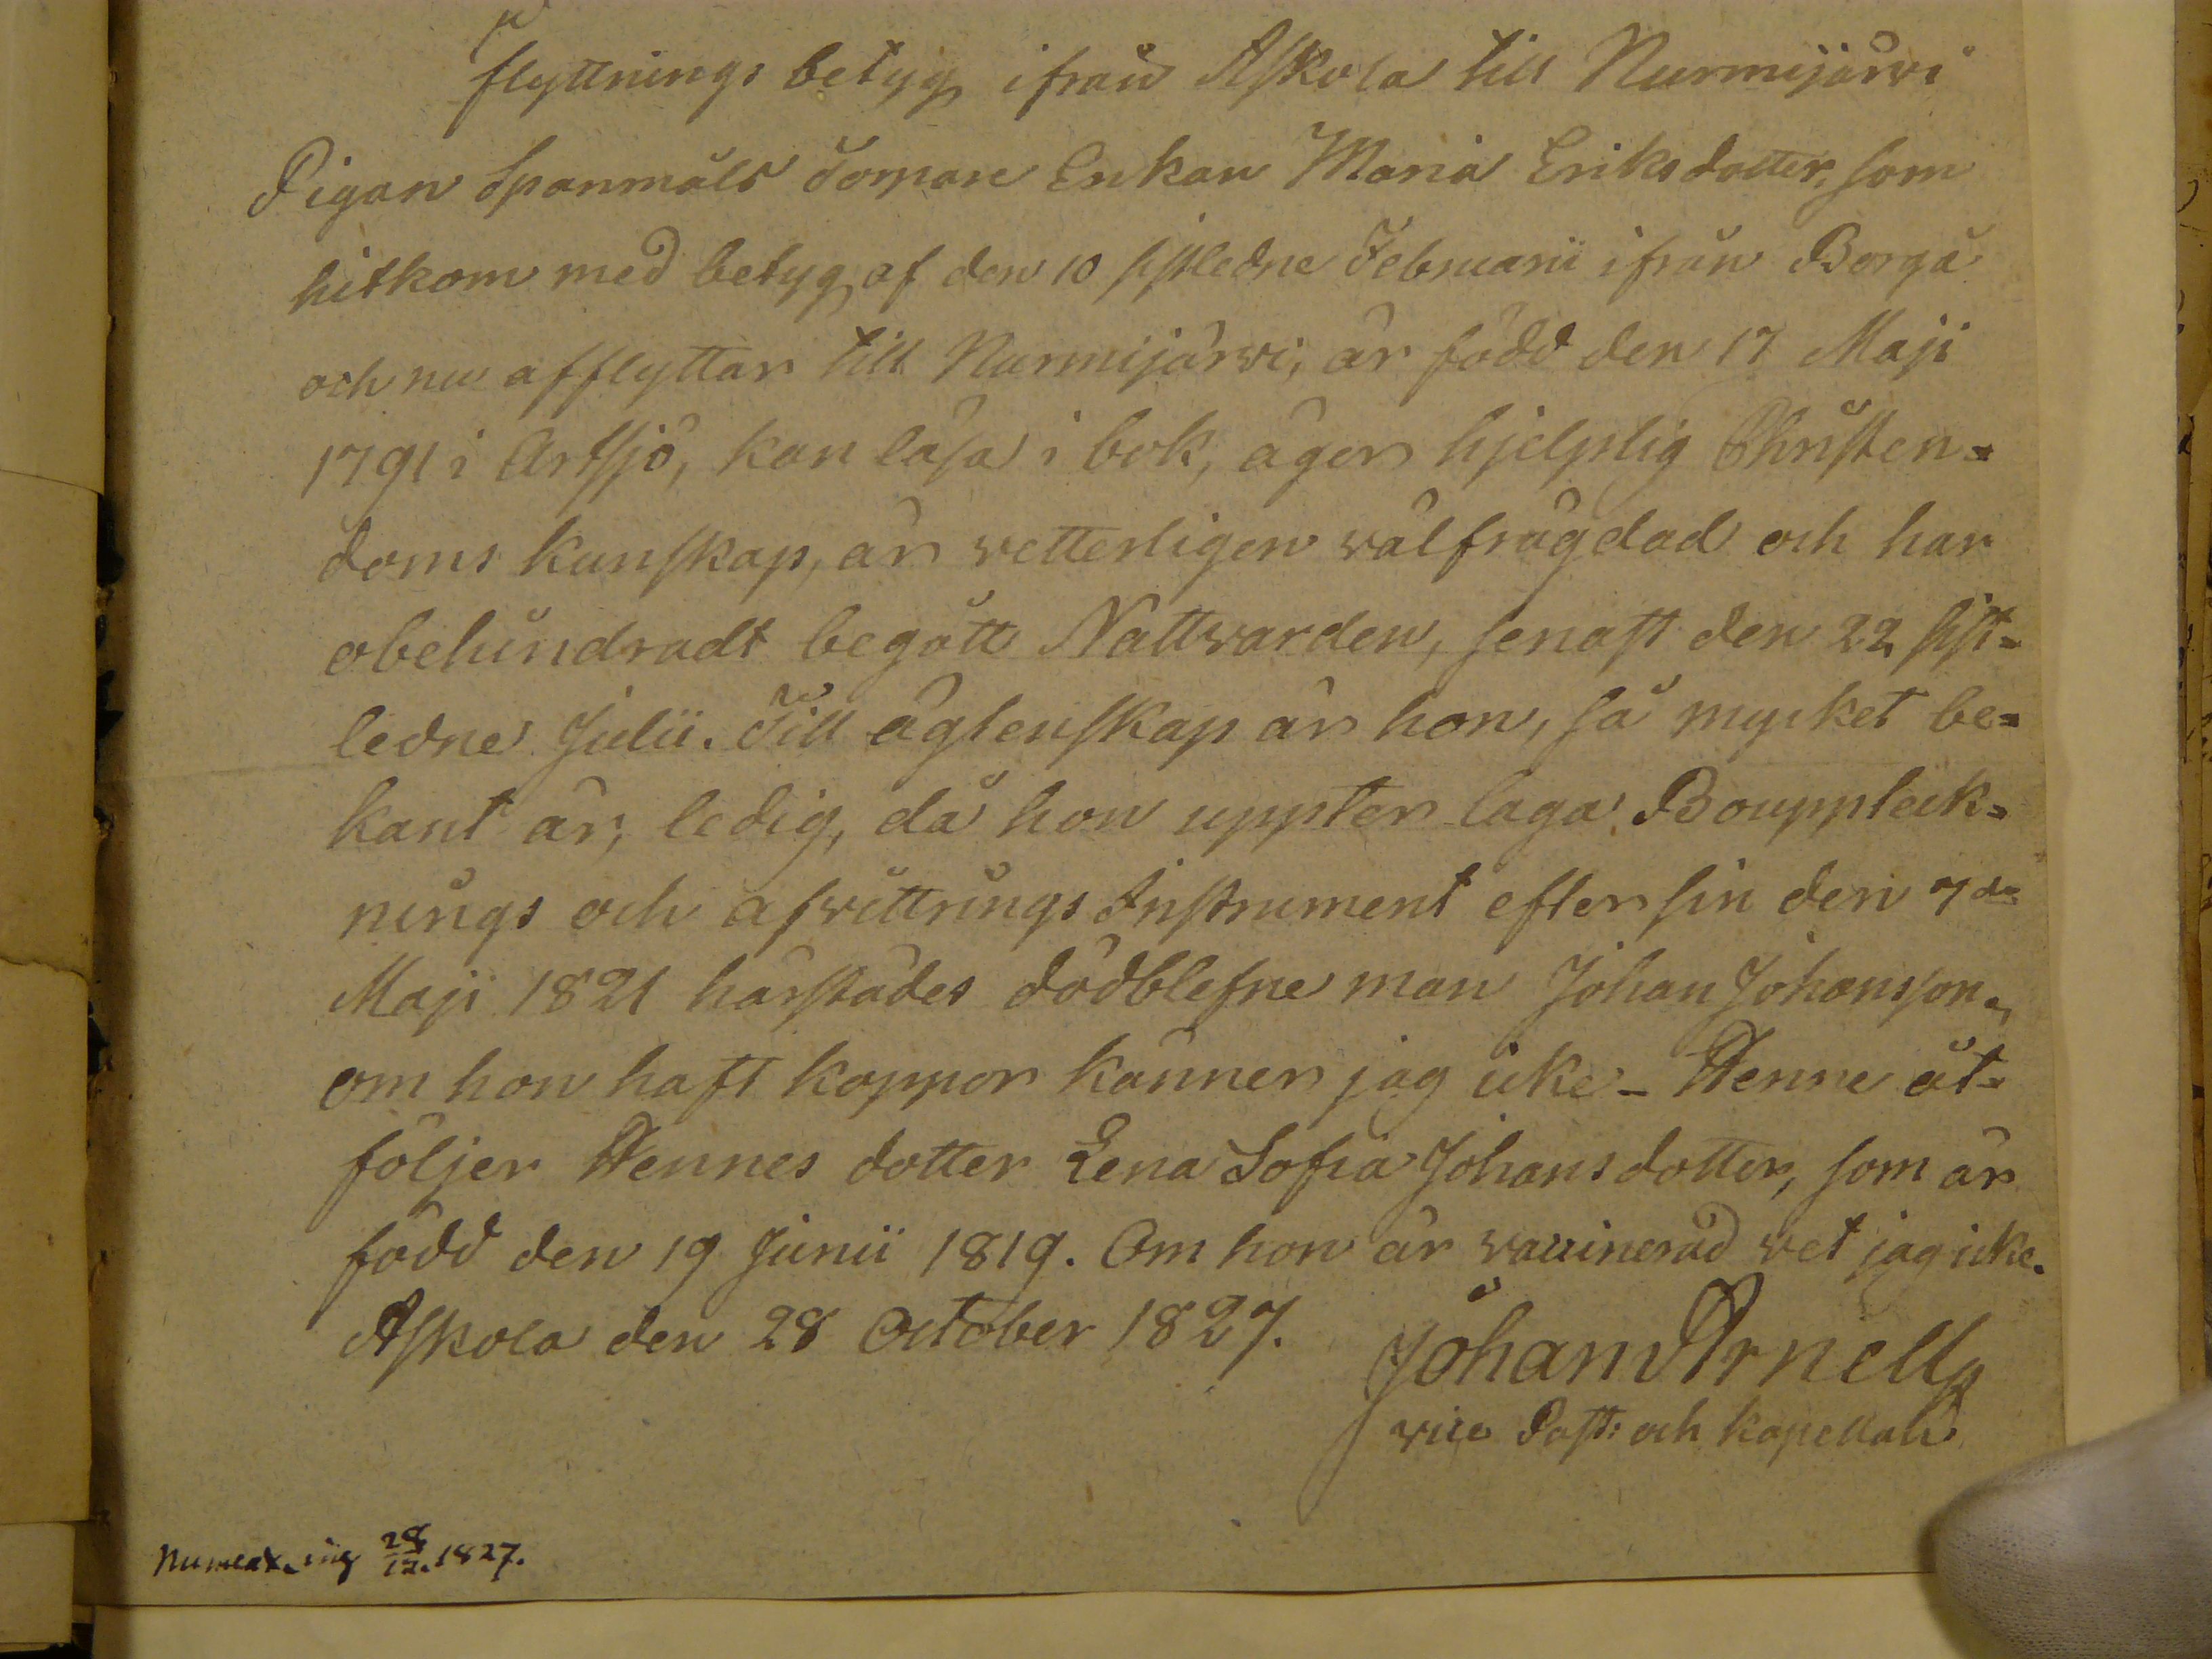 flyttnings betyg ifrån Askola till Nurmijärvi
Pigan Spanmåls Tomare Enkan Maria Eriksdotter, som
hitkom med betyg af den 10 sistledne Februarii ifrån Borgå
och nu afflyttar till Nurmijärvi, är född den 17 Maji
1791 i Artsjö, kan läsa i bok, äger hjelplig Christen=
doms kunskap, är vetterligen välfrägdad och har
obehindradt begått Nattvarden, senast den 22 sist=
ledne Julii. Till ägtenskap är hon, så mycket be=
kant är, ledig, då hon uppter laga Boupptéck=
nings och afvittrings Instrument efter sin den 7de
Maji 1821 härstädes dödblefne man Johan Johansson,
om hon haft koppor känner jag icke - Henne åt=
följer Hennes dotter Lena Sofia Johansdotter, som är
född den 19 Junii 1819. Om hon är vaccinerad vet jag icke.
Askola den 28 October 1827.
Johan Arnell
vice Past: och kapellan
28/12. 1827.